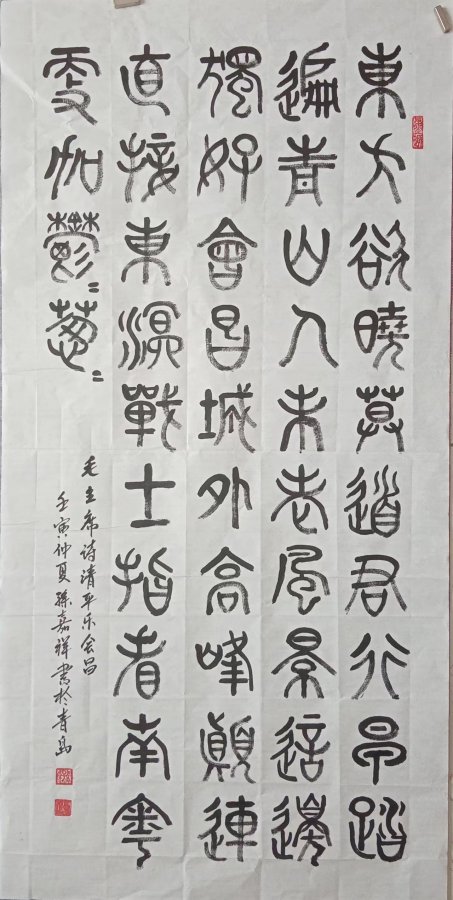 東方欲曉莫道君行早踏
遍青山人未老風景這邊
獨好會昌城外高峰顛連
直接東溟戰士指看南粵
更加鬱〻蔥〻
毛主席诗清平乐会昌
壬寅仲夏孫嘉祥書於青島